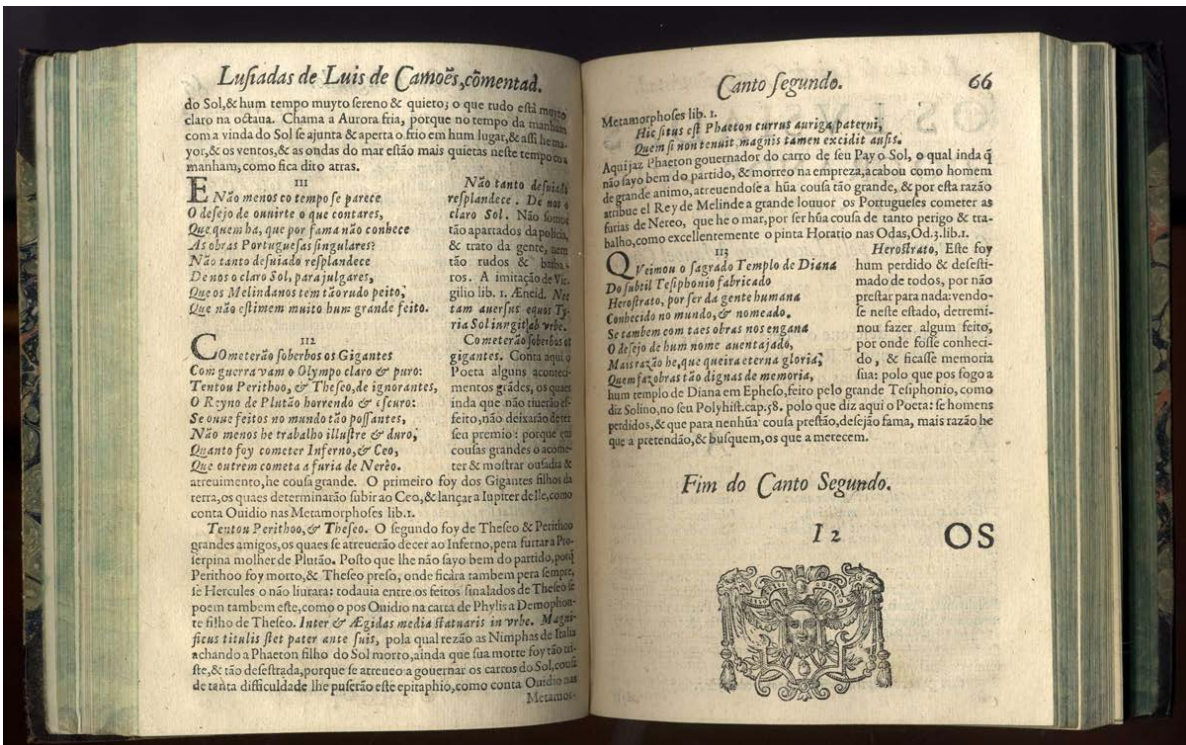 Luſiadas de Luis de Camoẽs, cõmentad.
do Sol, & hum tempo muyto ſereno & quieto; o que tudo eſtà muyto
claro na octaua. Chama a Aurora fria, porque no tempo da manham
com a vinda do Sol ſe ajunta & aperta o frio em hum lugar, & aſſi he ma-
yor, & os ventos, & as ondas do mar eſtão mais quietas neſte tempo da
manham, como fica dito atras.
111
E Não menos co tempo ſe parece
O deſejo de ouuirte o que contares,
Que quem ha, que por fama não conhece
As obras Portugueſas ſingulares?
Não tanto deſuiado reſplandece
De nos o claro Sol, para julgares,
Que os Melindanos tem tão rudo peito,
Que não eſtimem muito hum grande feito.
Não tanto deſuiado
reſplandece. De nos o
claro Sol. Não ſomos
tão apartados da policia,
& trato da gente, nem
tão rudos & barba-
ros. A imitação de Vir-
gilio lib. 1. Æneid. Nec
tam auerſus equos Ty-
ria Sol iungit ab vrbe.
112
COmeterão ſoberbos os Gigantes
Com guerra vam o Olympo claro & puro:
Tentou Perithoo, & Theſeo, de ignorantes,
O Reyno de Plutão horrendo & eſcuro:
Se ouue feitos no mundo tão poſſantes,
Não menos he trabalho illuſtre & duro,
Quanto foy cometer Inferno, & Ceo,
Que outrem cometa a furia de Nerèo.
Cometerão ſoberbos os
gigantes. Conta aqui o
Poeta alguns aconteci-
mentos grãdes, os quaes
inda que não tiuerão ef-
feito, não deixarão de ter
ſeu premio: porque em
couſas grandes o acome-
ter & moſtrar ouſadia &
atreuimento, he couſa grande. O primeiro foy dos Gigantes filhos da
terra, os quaes determinarão ſubir ao Ceo, & lançar a Iupiter delle, como
conta Ouidio nas Metamorphoſes lib.1.
Tentou Perithoo, & Theſeo. O ſegundo foy de Theſeo & Perithoo
grandes amigos, os quaes ſe atreuerão decer ao Inferno, pera furtar a Pro-
ſerpina molher de Plutão. Poſto que lhe não ſayo bem do partido, porq̃
Perithoo foy morto, & Theſeo preſo, onde ficàra tambem pera ſempre,
ſe Hercules o não liurara: todauia entre os feitos ſinalados de Theſeo ſe
poem tambem eſte, como o pos Ouidio na carta de Phylis a Demophon-
te filho de Theſeo. Inter & Ægidas media ſtatuaris in vrbe. Magni-
ficus titulis ſtet pater ante ſuis, pola qual rezão as Nimphas de Italia
achando a Phaeton filho do Sol morto, ainda que ſua morte foy tão tri-
ſte, & tão deſeſtrada, porque ſe atreueo a gouernar os carros do Sol, couſa
de tanta difficuldade lhe puſerão eſte epitaphio, como conta Ouidio nas
Metamor-
Canto ſegundo. 66
Metamorphoſes lib. 1.
Hic ſitus eſt Phaeton currus auriga paterni,
Quem ſi non tenuit, magnis tamen excidit auſis.
Aqui jaz Phaeton gouernador do carro de ſeu Pay o Sol, o qual inda q̃
não ſayo bem do partido, & morreo na empreza, acabou como homem
de grande animo, atreuendoſe a hũa couſa tão grande, & por eſta razão
atribue el Rey de Melinde a grande louuor os Portugueſes cometer as
furias de Nereo, que he o mar, por ſer hũa couſa de tanto perigo & tra-
balho, como excellentemente o pinta Horatio nas Odas, Od.3.lib.1.
113
QVeimou o ſagrado Templo de Diana
Do ſubtil Teſiphonio fabricado
Heroſtrato, por ſer da gente humana
Conhecido no mundo, & nomeado.
Se tambem com taes obras nos engana
O deſejo de hum nome auentajado,
Mais razão he, que queira eterna gloria,
Quem faz obras tão dignas de memoria,
Heroſtrato, Eſte foy
hum perdido & deſeſti-
mado de todos, por não
preſtar para nada: vendo-
ſe neſte eſtado, detremi-
nou fazer algum feito,
por onde foſſe conheci-
do, & ficaſſe memoria
ſua: polo que pos fogo a
hum templo de Diana em Epheſo, feito pelo grande Teſiphonio, como
diz Solino, no ſeu Polyhiſt.cap.58. polo que diz aqui o Poeta: ſe homens
perdidos, & que para nenhũa couſa preſtão, deſejão fama, mais razão he
que a pretendão, & buſquem, os que a merecem.
Fim do Canto Segundo.
I 2 OS